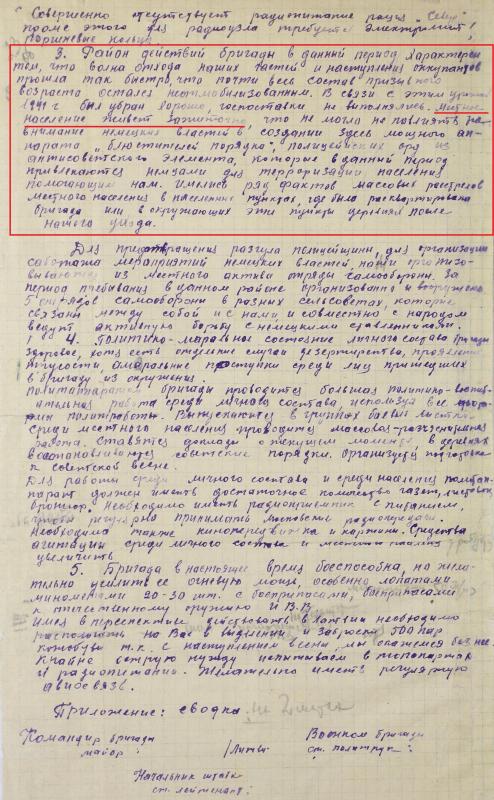 Совершенно отсутствует радиопитание рация "Север"
кроме этого для радиоузла требуется электролит,
поршневые кольца.
3. Район действий бригады в данной период характерен
тем, что волна отхода наших частей и наступления оккупантов
прошла так быстро, что почти весь состав призывного
возраста остался неотмобилизованным. В связи с этим урожай
1941 г был убран хорошо, госпоставки не выполнялись. Местное
население живет зажиточно, что не могло не повлиять на
внимание немецких властей в создании здесь мощного ап-
парата "блюстителей порядка", полицейских орд из
антисоветского элемента, которые в данный период
привлекаются немцами для терроризации населения
помогающим нам. Имелись ряд фактов массовых расстрелов
местного населения в населенных пунктах, где была расквартирована
бригада или в окружающих эти пункты деревнях после
нашего ухода.
Для предотвращения разгула полицейщины, для организации
саботажа мероприятий немецких властей нами организо-
вываются из местного актива отряды самообороны. За
период пребывания в данном районе организованно и вооружено
5 отрядов самообороны в разных сельсоветах, которые
связаны между собой и с нами и совместно с народом
ведут активную борьбу с немецкими ставленниками.
4. Политико-моральное состояние личного состава бригады
здоровое, хотя есть отдельные случаи дезертирства, проявления
трусости, аморальные поступки среди лиц пришедших
в бригаду из окружения.
Политаппаратом бригады проводится большая политико-воспит-
ательная работа среди личного состава, используя все фор-
мы политработы. Выпускаются в группах боевые листки.
Среди местного населения проводится массово-разъяснительная
работа. Ставятся доклады о текущем моменте, в деревнях
восстанавливаются советские порядки. Организуется подготовка
к советской весне.
Для работы среди личного состава и среди населения полит ап-
парат должен иметь достаточное количество газет, листовок,
брошюр. Необходимо иметь радиоприемник с питанием,
чтобы регулярно принимать московские радиопередачи.
Необходима также кинопередвижка и картины. Средства
агитации среди личного состава и местного населения
увеличить.
5. Бригада в настоящее время боеспособна, но жела-
тельно усилить ее огневую мощь, особенно лопатами
минометами 20-30 шт. с боеприпасами, боеприпасами
к отечественному оружию и В.В.
Имея в перспективе действовать в
располагать на Вас в выделении и заброске 500 пар
т.к. с наступлением весны мы окажемся без нее.
Крайне острую нужду испытываем в топокартах
и радиопитании. Желательно иметь регулярную
авиосвязь.
Приложение: сводка на 2 листах
Командир бригады
майор:
/Литвы
Военком бригады
ст. политрук:
Начальник штаба
ст. лейтенант: